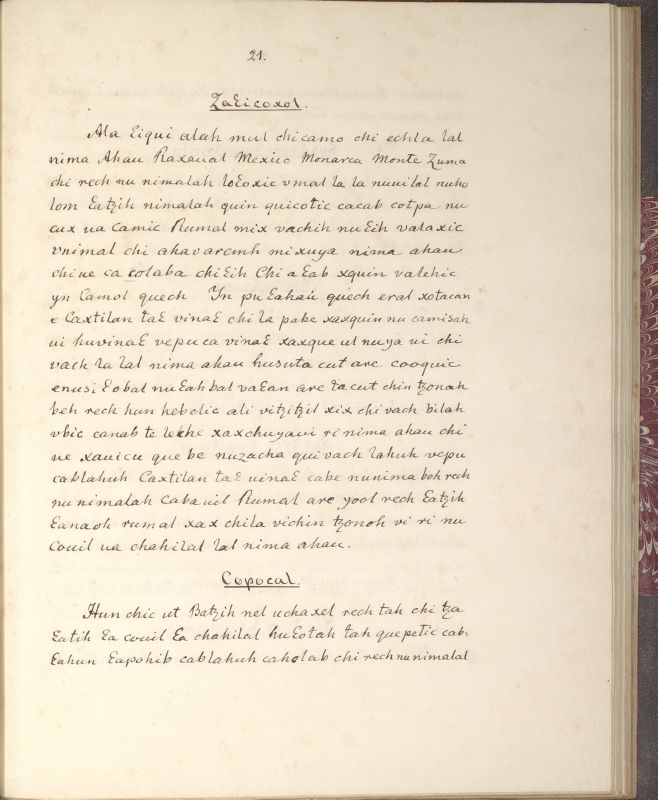 21.
Zaɛicoxol.
Ala ɛiqui alah mul chicamo chi echla lal
nima Ahau Raxaual Mexico Monarca Monte Zuma
chi rech nu nimalah loɛoxic vmal la la nuuilal nuho
lom ɛatzih nimalah quin quicotic cacab cotpa nu
cux ua camic Rumal mix vachih nuɛih valaxic
vnimal chi ahavaremh mixuya nima ahau
chiue ca colaba chiɛih Chi aɛab xquin valehic
yn Camol quech Yn pu ɛahau quech eral xotacan
e Caxtilan taɛ vinaɛ chi la pake xaxquin nu camisah
ui huvinaɛ vepu ca vinaɛ xaxque ul nuya ui chi
vach la lal nima ahau husuta cut are cooquic
enusi ɛobal nuɛah bal vaɛan are ta cut chin tzonoh
beh rech hun hebelic ali vitzitzil xix chi vach bilah
vbic canab te lekhe xaxchuyaui ri nima ahau chi
ue xauicu que be nuzacha qui vach lahuh vepu
cablahuh Caxtilan taɛ uinaɛ cabe nunima boh rech
nu nimalah Cabauil Rumal are yool rech ɛatzih
ɛanaoh rumal xax chila vichin tzonoh vi ri nu
Couil ua chahilal lal nima ahau.
Copocal.
Hun chic ut Batzih nel uchaxel rech tah chi tza
ɛatih ɛa couil ɛa chahilal huɛotah tah quepetic cab-
ɛahun ɛapohib cablahuh caholab chi rech nu nimalal